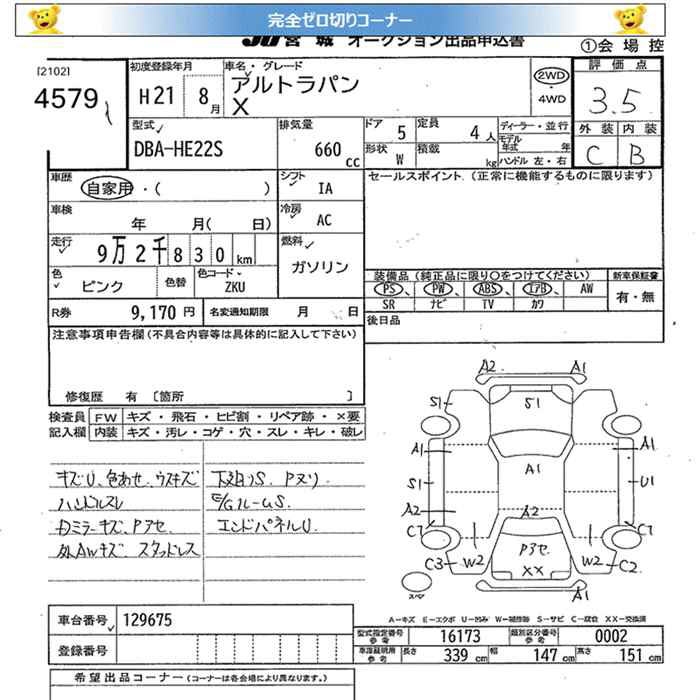 完全ゼロ切りコーナー
JU宮城 オークション出品申込書
①会場控
[2102]
4579
初度登録年月
H21 8月
車名・グレード
アルトラパン
X
2WD
・
4WD
評価点
3.5
外装 内装
C B
型式
DBA-HE22S
排気量
660cc
ドア 5
定員 4人
形状 W
積載 kg
ディーラー・並行
モデル年式 年
ハンドル 左・右
車歴
自家用・( )
シフト IA
セールスポイント.(正常に機能するものに限ります)
車検
年 月( 日)
冷房 AC
走行
9万2千830km
燃料
ガソリン
色
ピンク
色替
色コード
ZKU
装備品(純正品に限り○をつけてください)
新車保証書
PS、PW、ABS、エアB、AW
SR ナビ TV カワ
有・無
R券 9,170円
名変通知期限 月 日
後日品
注意事項申告欄(不具合内容等は具体的に記入して下さい)
修復歴 有 [箇所 ]
検査員記入欄
FW キズ・飛石・ヒビ割・リペア跡・×要
内装 キズ・汚レ・コゲ・穴・スレ・キレ・破レ
キズU、色あせ、ウスキズ
ハンドルスレ
カミラーキズ、Pアセ
外AWキズ スタッドレス
下廻りS、Pヌリ
E/GルームS
エンドパネルU
A2 A1
S1 S1
A1 A1 A1
S1 U1
A2 A2
C7 C7
Pアセ
XX
C3 W2 W2 C2
スペア
A1
A-キズ E-エクボ U-凹み W-補修跡 S-サビ C-腐食 XX-交換済
車台番号 129675
登録番号
型式指定番号 参考 16173
類別区分番号 参考 0002
車庫証明用 参考 長さ 339cm 幅 147cm 高さ 151cm
希望出品コーナー(コーナーは各会場により異なります。)